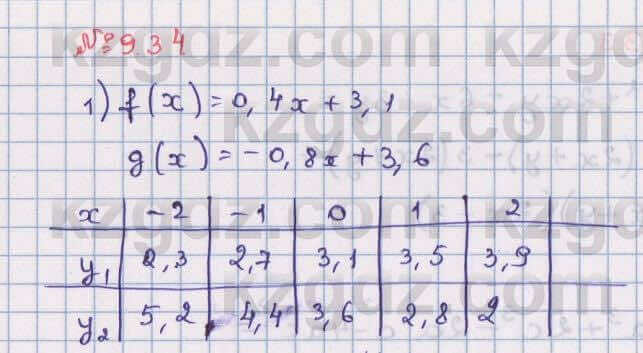 №934
1) f(x)=0,4x+3,1
g(x)=-0,8x+3,6
x -2 -1 0 1 2
y₁ 2,3 2,7 3,1 3,5 3,9
y₂ 5,2 4,4 3,6 2,8 2
kzgdz.com kzgdz.com
kzgdz.com
kzgdz.com kzgdz.com
kzgdz.com